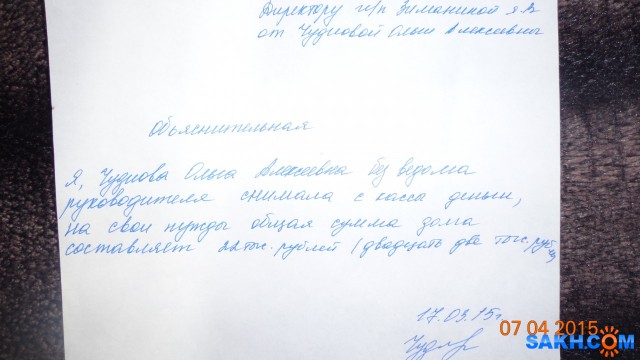 Директору г/п Зиманиной Я.В
от Чудновой Ольги Алексеевны
Обьяснительная
Я, Чуднова Ольга Алексеевна без ведома
руководителя снимала с касса деньги,
на свои нужды общая сумма долга
составляет 22 тыс. рублей (двадцать две тыс. руб
17.03.15г.
07 04 2015
SAKH.COM